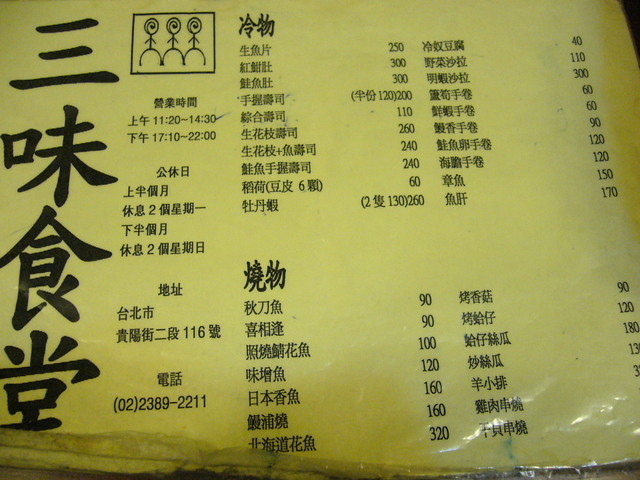 三味食堂
營業時間
上午 11:20~14:30
下午 17:10~22:00
公休日
上半個月
休息 2 個星期一
下半個月
休息 2 個星期日
地址
台北市
貴陽街二段 116 號
電話
(02)2389-2211
冷物
生魚片 250 冷奴豆腐 40
紅魽肚 300 野菜沙拉 110
鮭魚肚 300 明蝦沙拉 300
手握壽司 (半份120)200 蘆筍手卷 60
綜合壽司 110 鮮蝦手卷 60
生花枝壽司 260 鰻香手卷 90
生花枝+魚壽司 240 鮭魚卵手卷 120
鮭魚手握壽司 240 海膽手卷 120
稻荷(豆皮 6顆) 60 章魚 150
牡丹蝦 (2隻130)260 魚肝 170
燒物
秋刀魚 90 烤香菇 90
喜相逢 90 烤蛤仔 120
照燒鯖花魚 100 蛤仔絲瓜 180
味增魚 120 炒絲瓜
日本香魚 160 羊小排
鰻浦燒 160 雞肉串燒
北海道花魚 320 干貝串燒